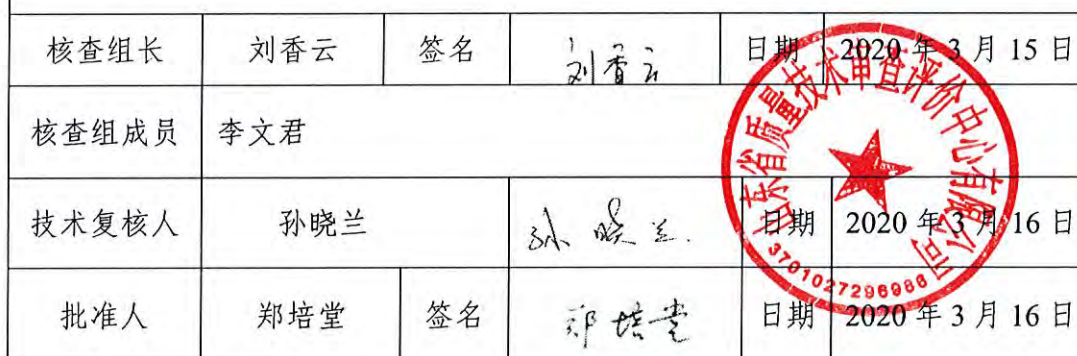 核查组长 刘香云 签名 刘香云 日期 2020 年 3 月 15 日
核查组成员 李文君
技术复核人 孙晓兰 孙晓兰 日期 2020 年 3 月 16 日
批准人 郑培堂 签名 郑培堂 日期 2020 年 3 月 16 日
山东省质量技术审查评价中心有限公司
3701027296986